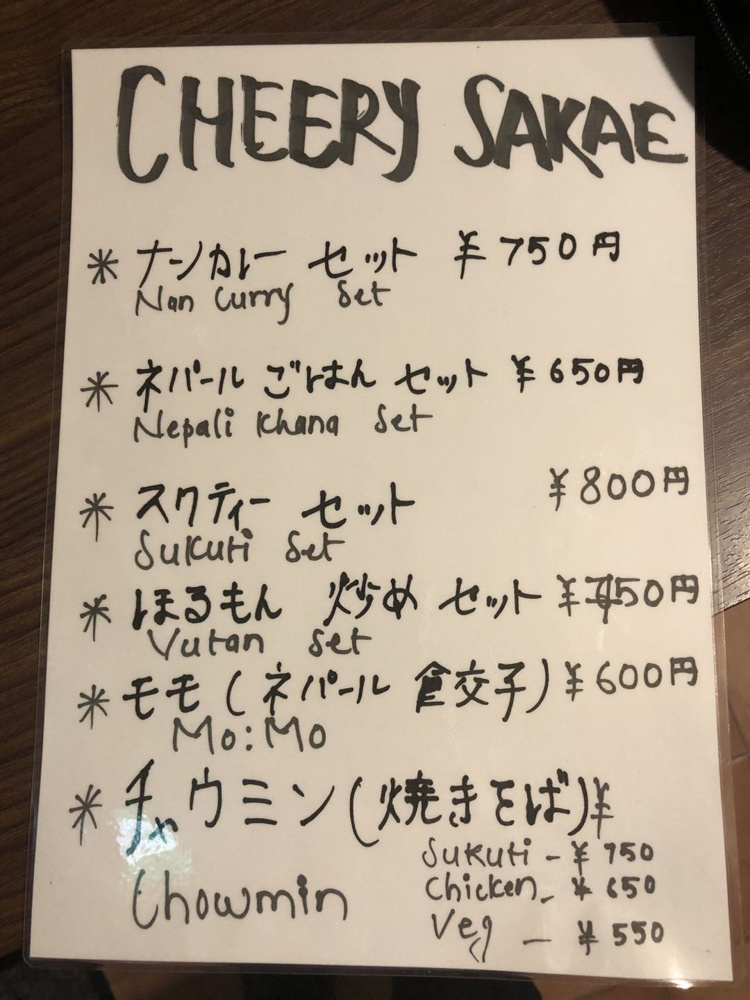 CHEERY SAKAE
* ナンカレー セット ¥750円
Nan Curry Set
* ネパール ごはん セット ¥650円
Nepali Khana Set
* スクティー セット ¥800円
Sukuti Set
* ほるもん 炒め セット ¥750円
Vutan Set
* モモ (ネパール 食交子) ¥600円
Mo:Mo
* チャウミン (焼きそば) ¥
Chowmin
Sukuti - ¥750
Chicken - ¥650
Veg - ¥550